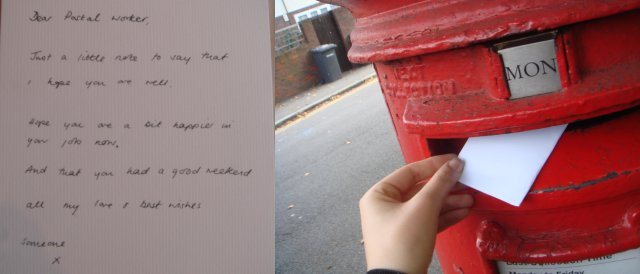 Dear Postal Worker,
Just a little note to say that
i hope you are well.
Hope you are a bit happier in
your jobs now.
And that you had a good weekend
all my love & best wishes
Someone
x
MON
NEXT
COLLECTION
Last Collection Time
Monday to Friday